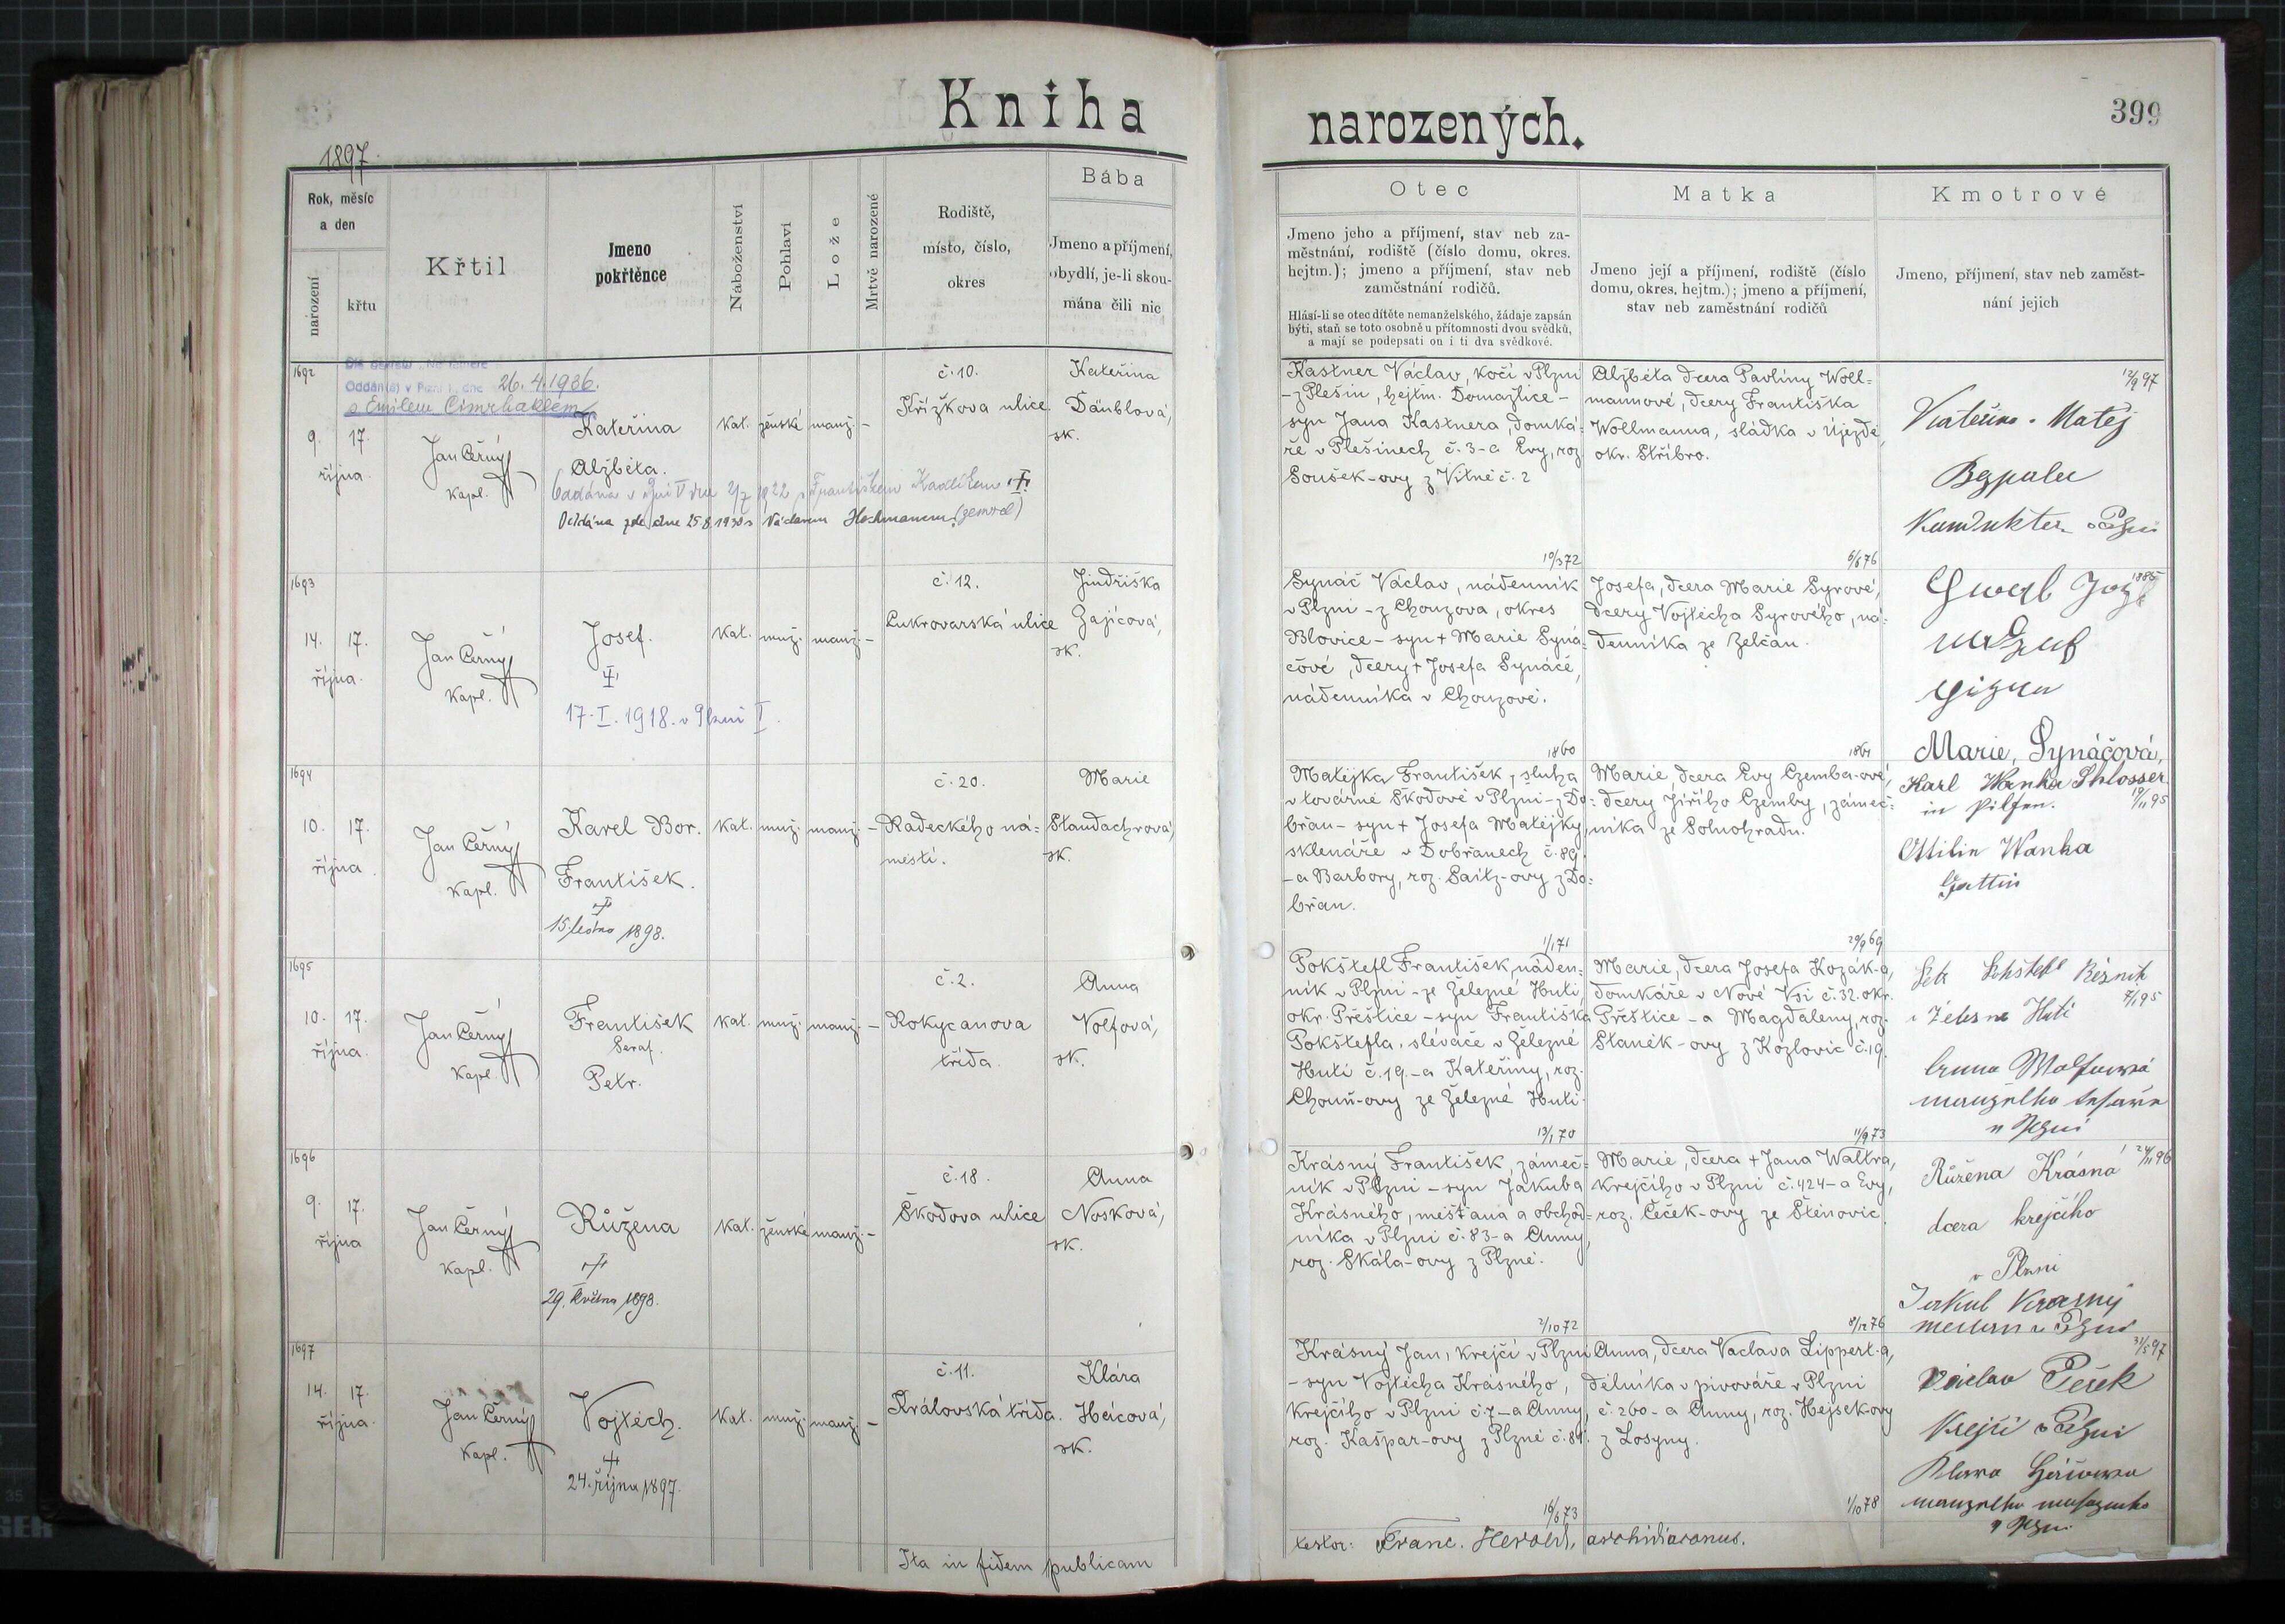 Kniha
narozených.
399
1897.
Rok, měsíc
a den
narození
křtu
Křtil
Jmeno
pokřtěnce
Náboženství
Pohlaví
Lože
Mrtvě narozené
Rodiště,
místo, číslo,
okres
Bába
Jmeno a příjmení,
obydlí, je-li skou-
mána čili nic
Otec
Jmeno jeho a příjmení, stav neb za-
městnání, rodiště (číslo domu, okres.
hejtm.); jmeno a příjmení, stav neb
zaměstnání rodičů.
Hlásí-li se otec dítěte nemanželského, žádaje zapsán
býti, staň se toto osobně u přítomnosti dvou svědků,
a mají se podepsati on i ti dva svědkové.
Matka
Jmeno její a příjmení, rodiště (číslo
domu, okres. hejtm.); jmeno a příjmení,
stav neb zaměstnání rodičů
Kmotrové
Jmeno, příjmení, stav neb zaměst-
nání jejich
1692
Oddán(a) v Plzni I., dne 26.4.1936.
s Emilem Cimrhaklem
9. 17.
října.
Jan Černý
kapl.
Kateřina
Alžběta.
Oddána v Plzni V dne 2/7 1922 s Františkem Kadlčkem
Oddána zde dne 25.8.1930 s Václavem Hochmanem (zemřel)
kat. ženské manž. –
č. 10.
Křížkova ulice
Kateřina
Däublová,
sk.
Kastner Václav, kočí v Plzni
– z Plešin, hejtm. Domažlice –
syn Jana Kastnera, domká-
ře v Plešinech č. 3 – a Evy, roz.
Soušek-ovy z Vítné č. 2
10/3 72
Alžběta dcera Pavlíny Woll=
mannové, dcery Františka
Wollmanna, sládka v Újezdě,
okr. Stříbro.
6/6 76
12/9 97
Kateřina Matěj
Kondukter v Plzni
1693
14. 17.
října.
Jan Černý
kapl.
Josef.
17. I. 1918. v Plzni I.
kat. muž. manž. –
č. 12.
Cukrovarská ulice
Jindřiška
Zajícová,
sk.
Synáč Václav, nádenník
v Plzni – z Chouzova, okres
Blovice – syn + Marie Syná-
čové, dcery + Josefa Synáče,
nádenníka v Chouzově.
1860
Josefa, dcera Marie Syrové,
dcery Vojtěcha Syrového, ná-
denníka ze Zelčan.
1861
1885
Marie, Synáčová,
1694
10. 17.
října.
Jan Černý
kapl.
Karel Bor.
František.
15. ledna 1898.
kat. muž. manž. –
č. 20.
Radeckého ná=
městí.
Marie
Staudachrová,
sk.
Matějka František, sluha
v továrně Škodově v Plzni – z Do=
břan – syn + Josefa Matějky,
sklenáře v Dobřanech č. 89.
– a Barbory, roz. Saitz-ovy z Do=
břan.
1/1 71
Marie, dcera Evy Czemba-ové,
dcery Jiřího Czemby, zámeč=
níka ze Solnohradu.
29/9 69
Karl Wanka Schlosser
in Pilsen. 19/11 95
Ottilie Wanka
Gattin
1695
10. 17.
října.
Jan Černý
kapl.
František
Seraf.
Petr.
kat. muž. manž. –
č. 2.
Rokycanova
třída.
Anna
Volfová,
sk.
Pokštefl František, náden=
ník v Plzni – ze Železné Huti,
okr. Přeštice – syn Františka
Pokštefla, slévače v Železné
Huti č. 19. – a Kateřiny, roz.
Chouň-ovy ze Železné Huti.
13/1 70
Marie, dcera Josefa Kozák-a,
domkáře v Nové Vsi č. 32. okr.
Přeštice – a Magdaleny, roz.
Staněk-ovy z Kozlovic č. 19.
11/9 73
7/1 95
v Železné Huti
Anna Wolfowá
v Plzni
1696
9. 17.
října
Jan Černý
kapl.
Růžena
29. května 1898.
kat. ženské manž. –
č. 18.
Škodova ulice
Anna
Nosková,
sk.
Krásný František, zámeč=
ník v Plzni – syn Jakuba
Krásného, měšťana a obchod=
níka v Plzni č. 83 – a Anny,
roz. Skála-ovy z Plzně.
2/10 72
Marie, dcera + Jana Waltra,
krejčího v Plzni č. 424 – a Evy,
roz. Čeček-ovy ze Štěnovic.
8/12 76
24/11 96
Růžena Krásná
dcera krejčího
v Plzni
Jakub Krásný
měšťan v Plzni
1697
14. 17.
října.
Jan Černý
kapl.
Vojtěch.
24. října 1897.
kat. muž. manž. –
č. 11.
Královská třída.
Klára
Heicová,
sk.
Krásný Jan, krejčí v Plzni
– syn Vojtěcha Krásného,
krejčího v Plzni č. 7 – a Anny,
roz. Kašpar-ovy z Plzně č. 84.
16/6 73
Anna, dcera Václava Lippert-a,
dělníka v pivováře v Plzni
č. 260 – a Anny, roz. Hejsek-ovy
z Losyny.
1/10 78
31/5 97
Václav Pešek
Krejčí v Plzni
v Plzni
Ita in fidem publicam
testor: Franc. Herold, archidiaconus.